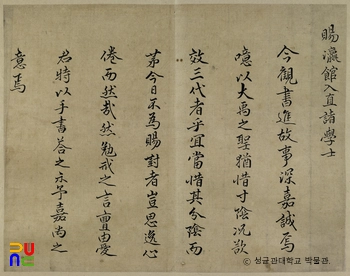 賜瀛館入直諸學士
今觀書進故事深嘉誠焉
噫以大禹之聖猶惜寸陰況欲
效三代者乎宜當惜其分陰而
茅今日不為賜對者豈思逸心
倦而然哉然勉戒之言亶由愛
君特以手書荅之示予嘉尚之
意焉
ⓒ 성균관대학교 박물관.